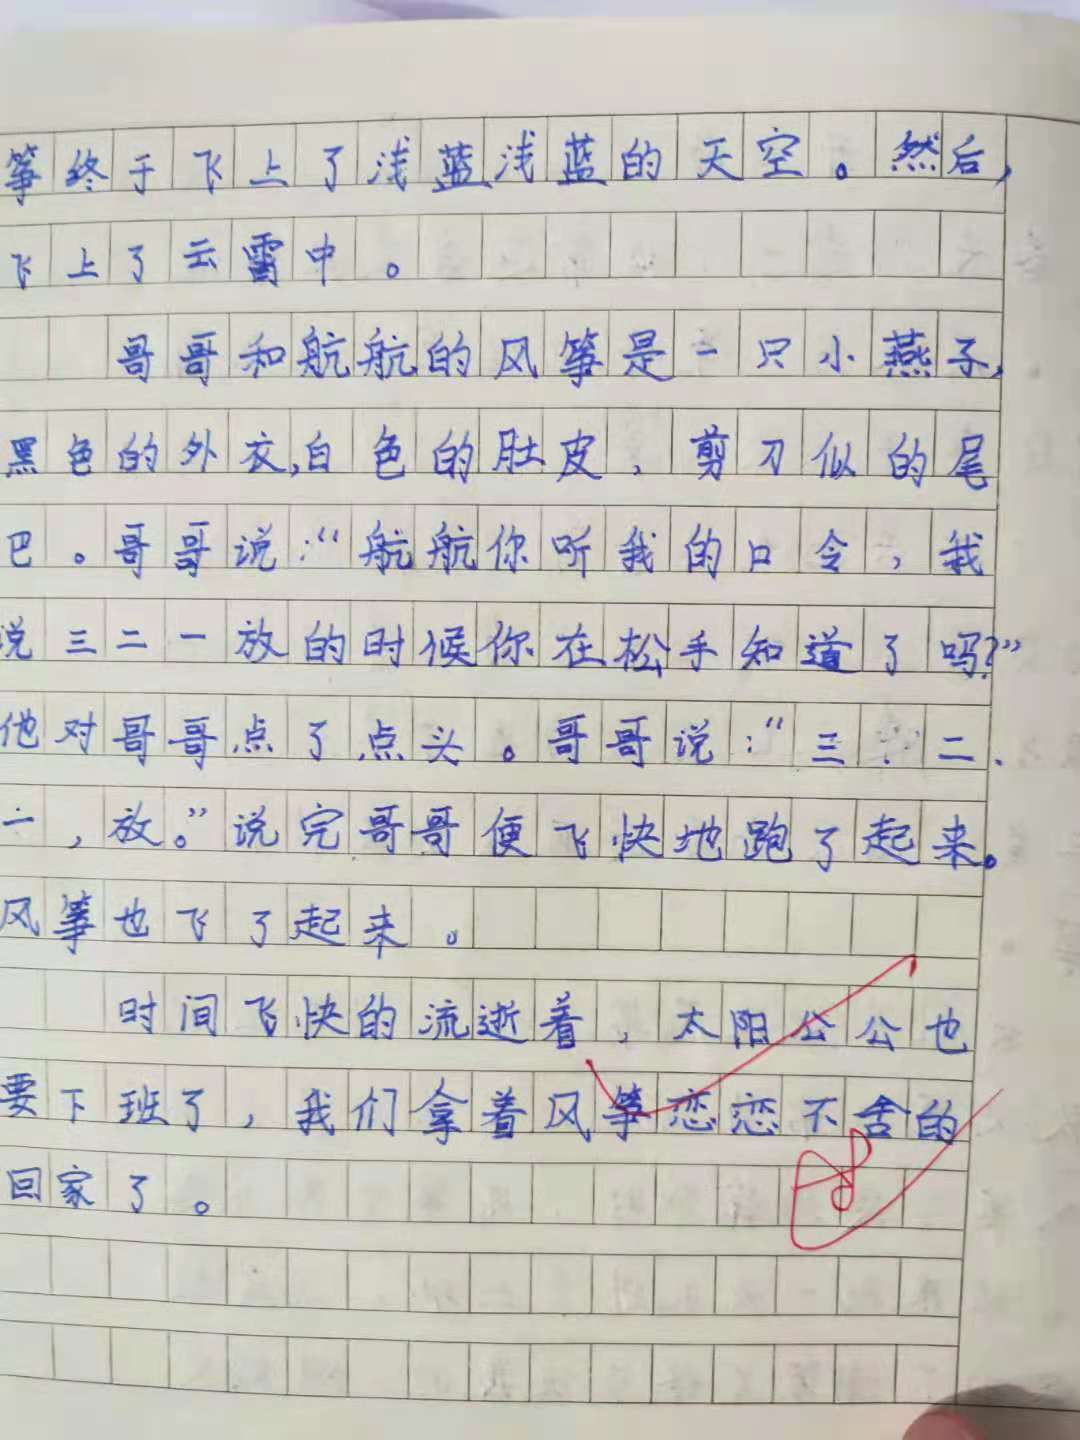 筝终于飞上了浅蓝浅蓝的天空。然后,
飞上了云雷中。
哥哥和航航的风筝是一只小燕子,
黑色的外衣,白色的肚皮,剪刀似的尾
巴。哥哥说:“航航你听我的口令,我
说三二一放的时候你在松手知道了吗?”
他对哥哥点了点头。哥哥说:“三、二、
一,放。”说完哥哥便飞快地跑了起来。
风筝也飞了起来。
时间飞快的流逝着,太阳公公也
要下班了,我们拿着风筝恋恋不舍的
回家了。